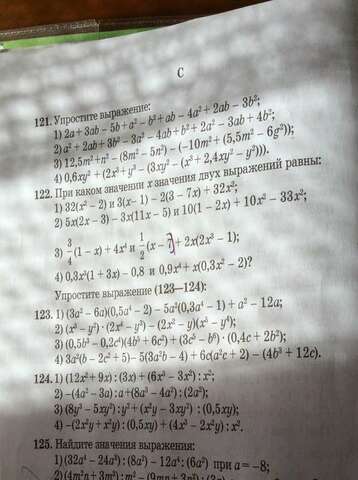 С
121. Упростите выражение:
1) 2a + 3ab − 5b + a² − b² + ab − 4a² + 2ab − 3b²;
2) a² + 2ab + 3b² − 3a² − 4ab + b² + 2a² − 3ab + 4b²;
3) 12,5m² + n² − (8m² − 5n²) − (−10m² + (5,5m² − 6g²));
4) 0,6xy² + (2x³ + y³ − (3xy² − (x³ + 2,4xy² − y³))).
122. При каком значении x значения двух выражений равны:
1) 32(x² − 2) и 3(x − 1) − 2(3 − 7x) + 32x²;
2) 5x(2x − 3) − 3x(11x − 5) и 10(1 − 2x) + 10x² − 33x²;
3) 3/4(1 − x) + 4x⁴ и 1/2(x − 7) + 2x(2x³ − 1);
4) 0,3x²(1 + 3x) − 0,8 и 0,9x³ + x(0,3x² − 2)?
Упростите выражение (123—124):
123. 1) (3a² − 6a)(0,5a⁴ − 2) − 5a²(0,3a⁴ − 1) + a² − 12a;
4) 3a²(b − 2c² + 5) − 5(3a²b − 4) + 6c(a²c + 2) − (4b³ + 12c).
124. 1) (12x² + 9x) : (3x) + (6x³ − 3x²) : x²;
2) −(4a² − 3a) : a + (8a³ − 4a²) : (2a²);
3) (8y³ − 5xy²) : y² + (x²y − 3xy²) : (0,5xy);
4) −(2x²y + x³y) : (0,5xy) + (4x³ − 2x²y) : x².
125. Найдите значения выражения:
1) (32a⁴ − 24a³) : (8a²) − 12a⁴ : (6a²) при a = −8;